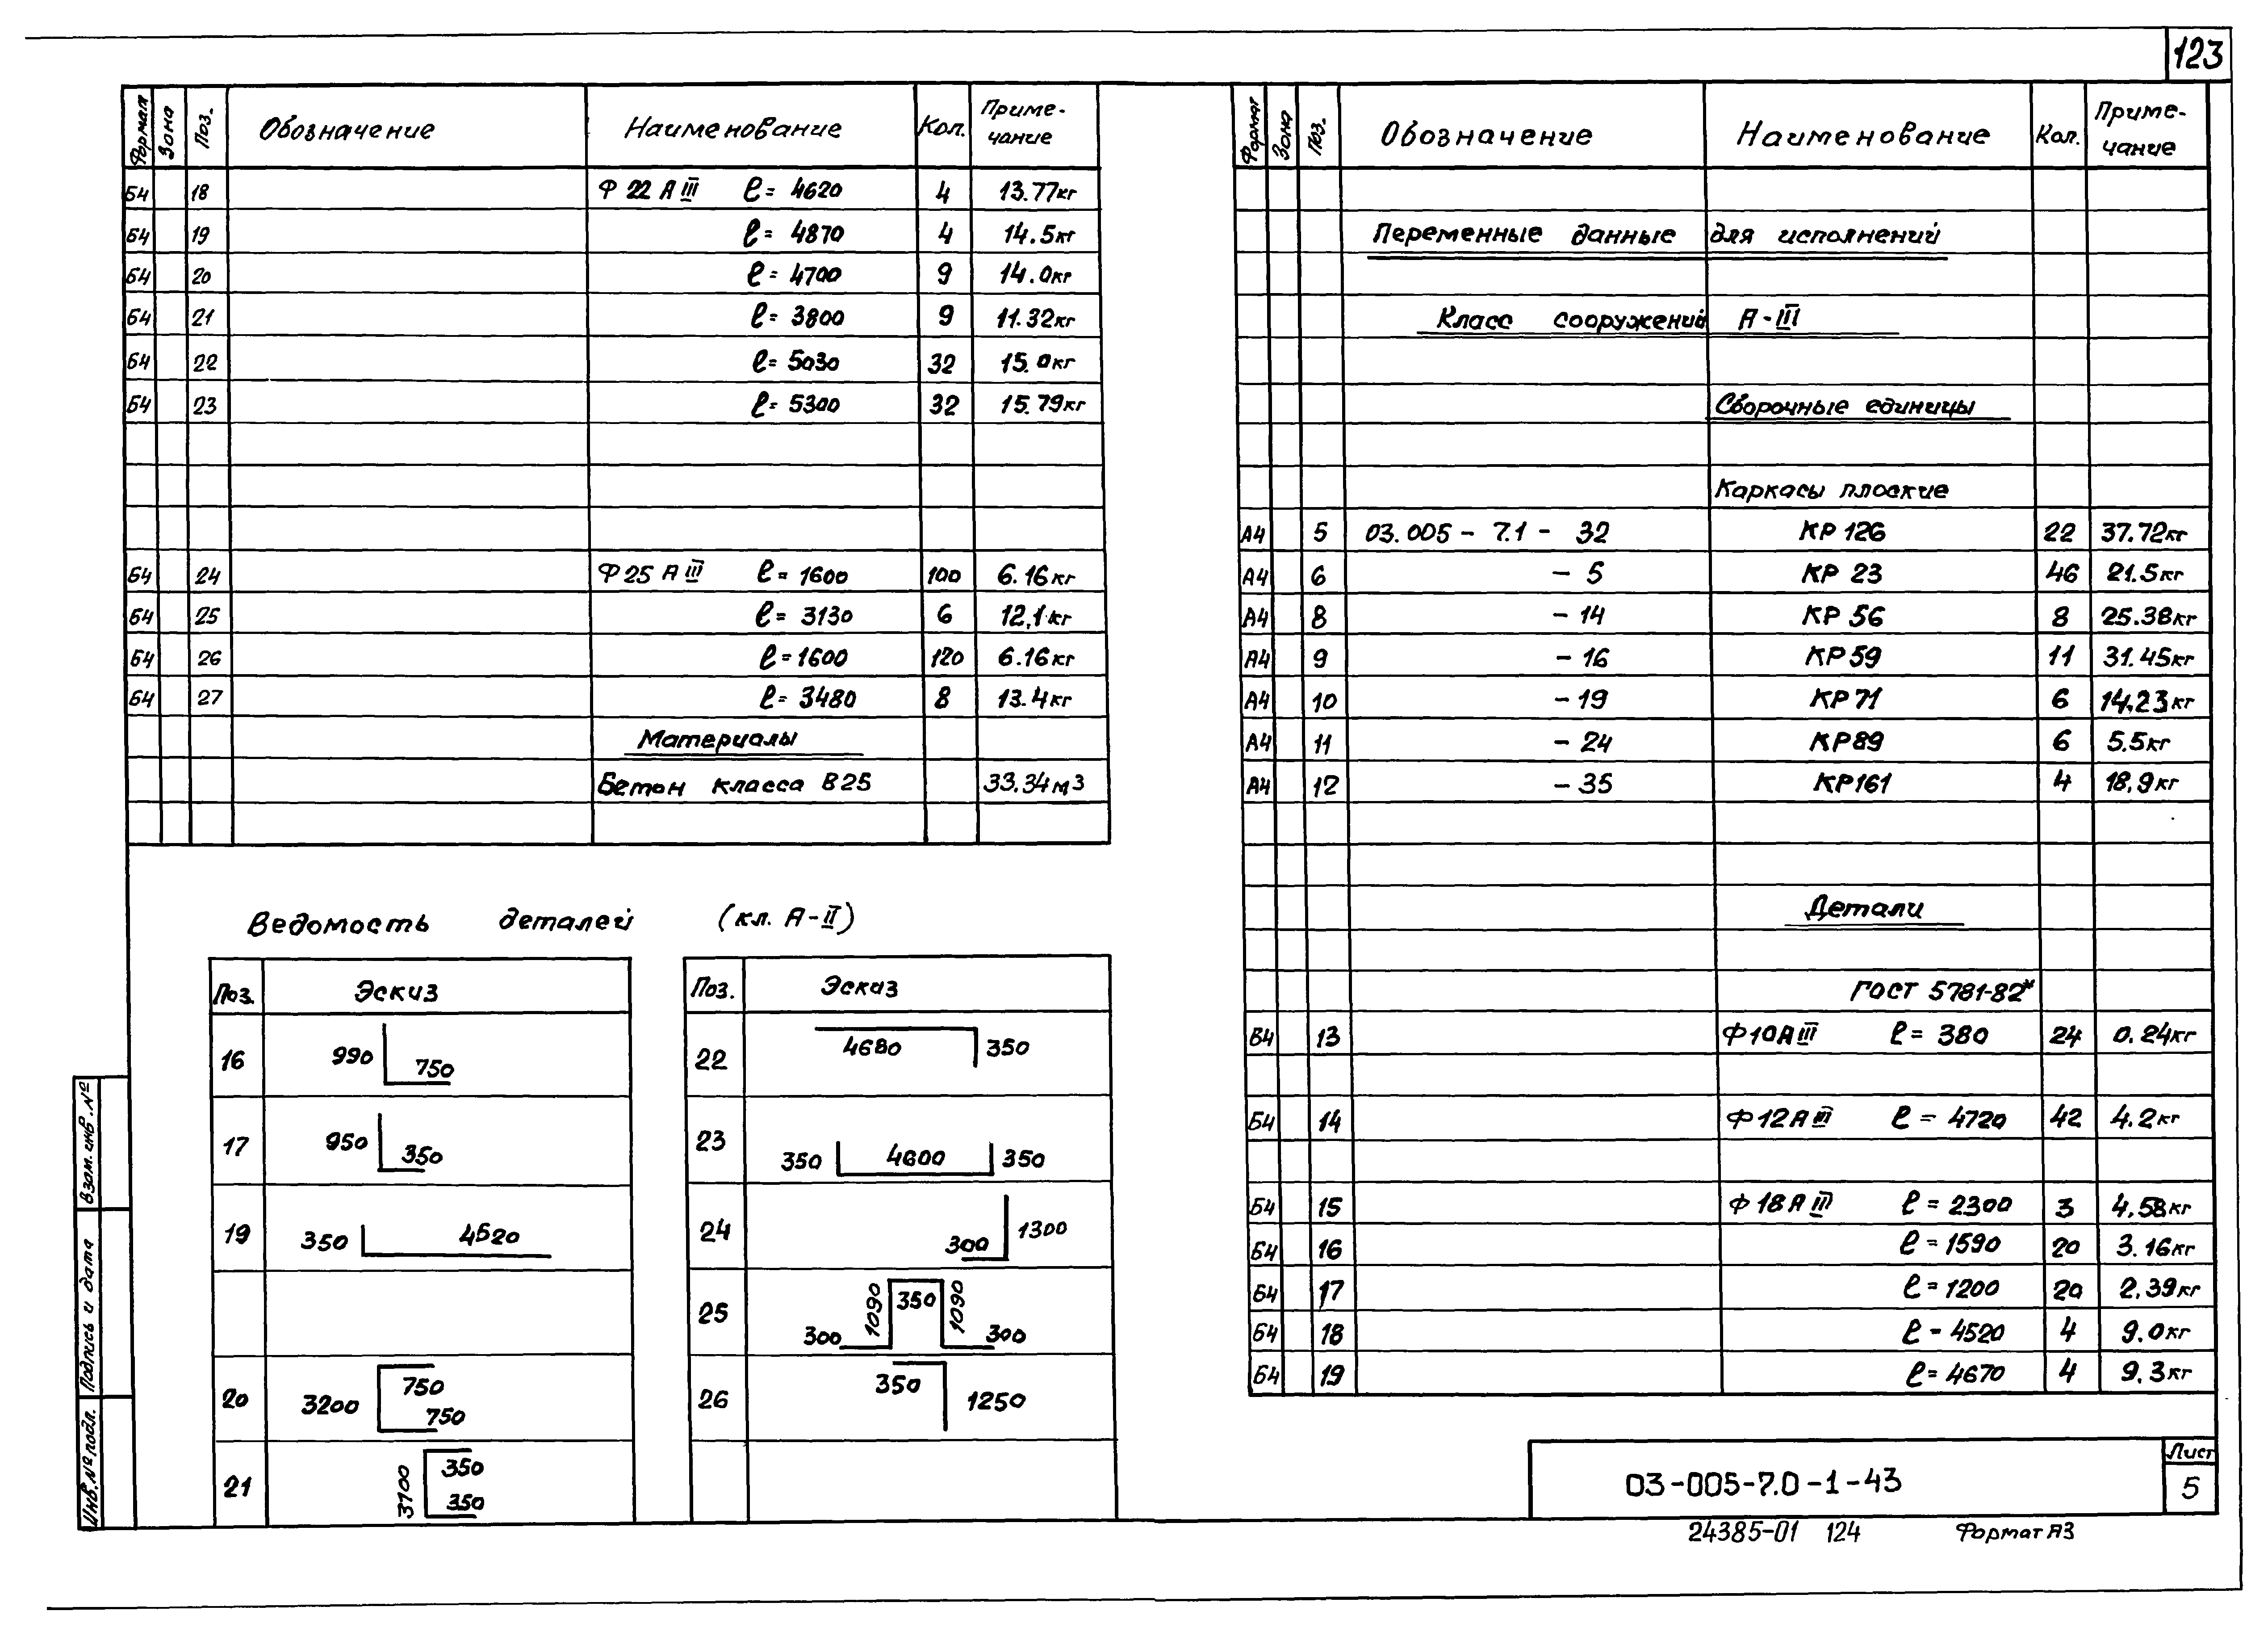 123
Формат Зона Поз. Обозначение Наименование Кол. Приме-
чание
Б4 18 Ф 22 А III ℓ = 4620 4 13.77кг
Б4 19 ℓ = 4870 4 14.5кг
Б4 20 ℓ = 4700 9 14.0кг
Б4 21 ℓ = 3800 9 11.32кг
Б4 22 ℓ = 5030 32 15.0кг
Б4 23 ℓ = 5300 32 15.79кг
Б4 24 Ф 25 А III ℓ = 1600 100 6.16кг
Б4 25 ℓ = 3130 6 12,1кг
Б4 26 ℓ = 1600 120 6.16кг
Б4 27 ℓ = 3480 8 13.4кг
Материалы
Бетон класса В25 33.34м3
Ведомость деталей (кл. А-II)
Поз. Эскиз
16 990 750
17 950 350
19 350 4520
20 3200 750 750
21 3100 350 350
Поз. Эскиз
22 4680 350
23 350 4600 350
24 300 1300
25 300 1090 350 1090 300
26 350 1250
Формат Зона Поз. Обозначение Наименование Кол. Приме-
чание
Переменные данные для исполнений
Класс сооружений А-III
Сборочные единицы
Каркасы плоские
А4 5 03.005 - 7.1 - 32 КР 126 22 37.72кг
А4 6 - 5 КР 23 46 21.5кг
А4 8 - 14 КР 56 8 25.38кг
А4 9 - 16 КР 59 11 31.45кг
А4 10 - 19 КР 71 6 14,23кг
А4 11 - 24 КР89 6 5.5кг
А4 12 - 35 КР161 4 18,9кг
Детали
ГОСТ 5781-82*
В4 13 Ф10А III ℓ = 380 24 0.24кг
Б4 14 Ф 12 А III ℓ = 4720 42 4.2кг
Б4 15 Ф 18 А III ℓ = 2300 3 4.58кг
Б4 16 ℓ = 1590 20 3.16кг
Б4 17 ℓ = 1200 20 2.39кг
Б4 18 ℓ - 4520 4 9.0кг
Б4 19 ℓ = 4670 4 9.3кг
Взам. инв. №
Подпись и дата
Инв. № подл.
03-005-7.0-1-43
Лист
5
24385-01 124 Формат А3